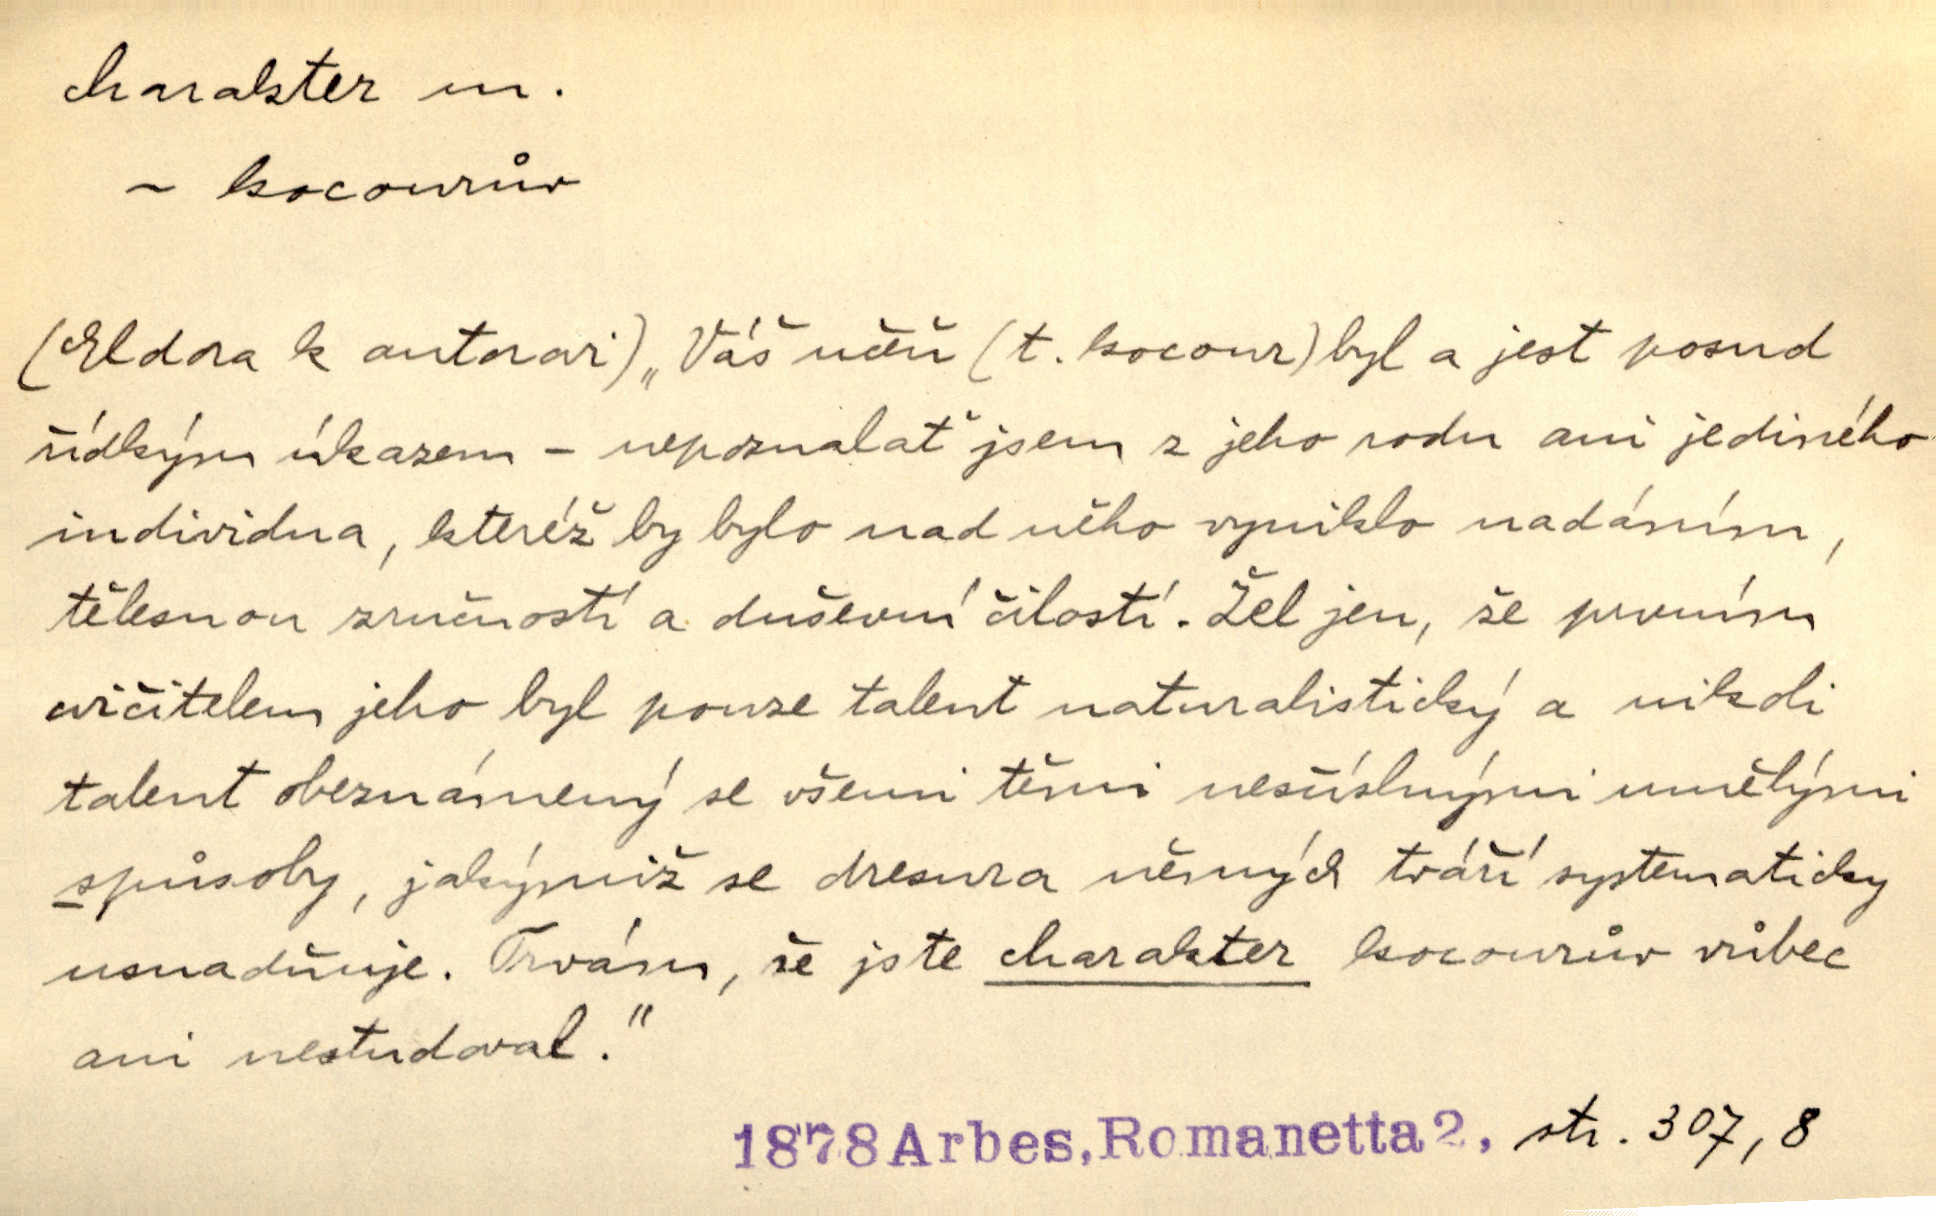 charakter m.
~ kocourův
(Eldora k autorovi) „Váš učeň (t. kocour) byl a jest posud
řídkým úkazem – nepoznalať jsem z jeho rodu ani jediného
individua, kteréž by bylo nad něho vyniklo nadáním,
tělesnou zručností a duševní čilostí. Žel jen, že prvním
cvičitelem jeho byl pouze talent naturalistický a nikoli
talent obeznámený se všemi těmi nesčíslnými umělými
spůsoby, jakýmiž se dresura němých tváří systematicky
usnadňuje. Trvám, že jste charakter kocourův vůbec
ani nestudoval."
1878 Arbes, Romanetta 2, str. 307, 8